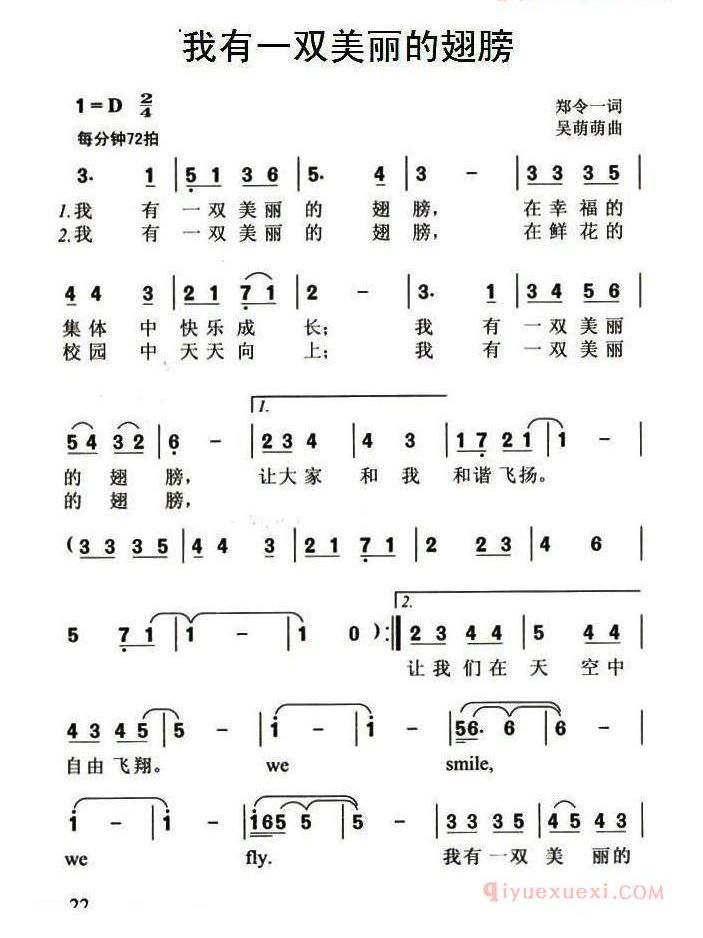 我有一双美丽的翅膀
1=D 2/4
郑令一词
每分钟72拍
吴萌萌曲
3· 1 | 5 1 3 6 | 5· 4 | 3 - | 3 3 3 5 |
1.我 有 一双美丽 的 翅 膀， 在幸福的
2.我 有 一双美丽 的 翅 膀， 在鲜花的
4 4 3 | 2 1 7 1 | 2 - | 3· 1 | 3 4 5 6 |
集体 中 快乐成 长； 我 有 一双美丽
校园 中 天天向 上； 我 有 一双美丽
1.
5 4 3 2 | 6 - | 2 3 4 | 4 3 | 1 7 2 1 | 1 - |
的 翅 膀， 让大家 和 我 和谐飞扬。
的 翅 膀，
(3 3 3 5 | 4 4 3 | 2 1 7 1 | 2 2 3 | 4 6 |
2.
5 7 1 | 1 - | 1 0 ) :‖ 2 3 4 4 | 5 4 4 |
让我们在 天 空中
4 3 4 5 | 5 - | 1 - | 1 - | 5 6· 6 | 6 - |
自由飞翔。 we smile,
1 - | 1 - | 1 6 5 5 | 5 - | 3 3 3 5 | 4 5 4 3 |
we fly. 我有一双 美 丽的
22
qiyuexuexi.com